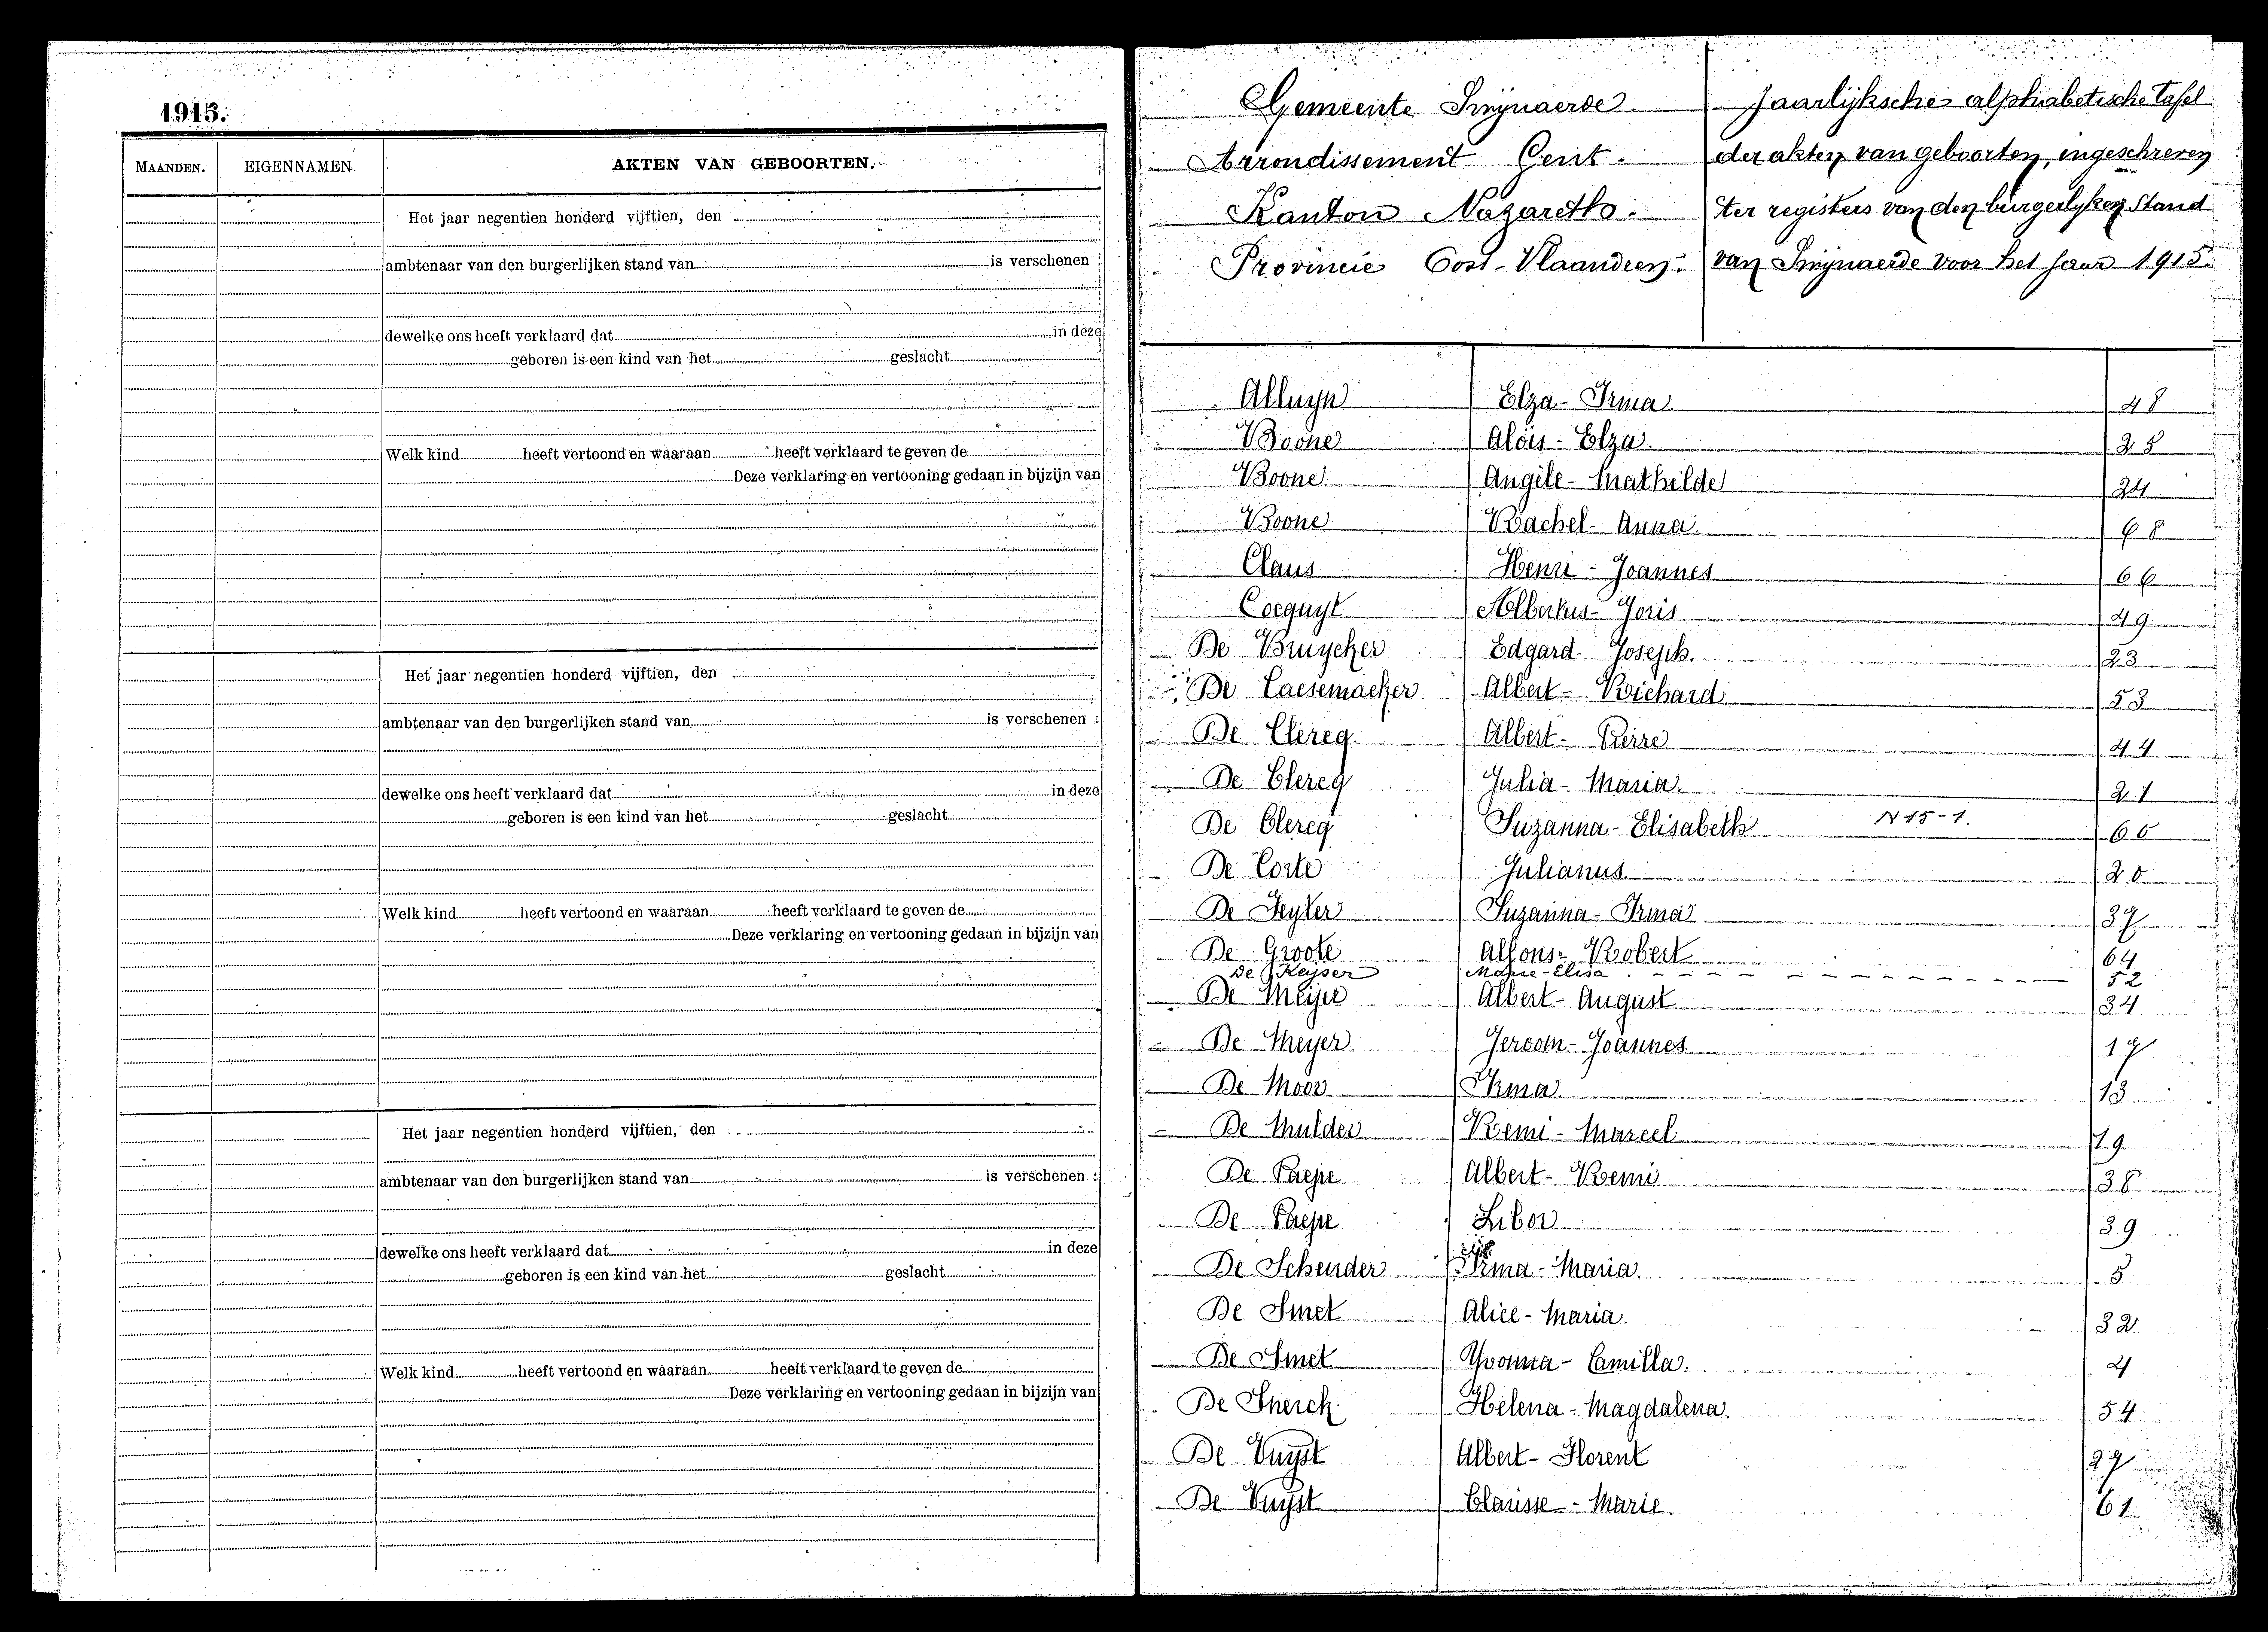 1915.
MAANDEN. EIGENNAMEN. AKTEN VAN GEBOORTEN.
Het jaar negentien honderd vijftien, den
ambtenaar van den burgerlijken stand van is verschenen :
dewelke ons heeft verklaard dat in deze
geboren is een kind van het geslacht
Welk kind heeft vertoond en waaraan heeft verklaard te geven de
Deze verklaring en vertooning gedaan in bijzijn van
Het jaar negentien honderd vijftien, den
ambtenaar van den burgerlijken stand van is verschenen :
dewelke ons heeft verklaard dat in deze
geboren is een kind van het geslacht
Welk kind heeft vertoond en waaraan heeft verklaard te geven de
Deze verklaring en vertooning gedaan in bijzijn van
Het jaar negentien honderd vijftien, den
ambtenaar van den burgerlijken stand van is verschenen :
dewelke ons heeft verklaard dat in deze
geboren is een kind van het geslacht
Welk kind heeft vertoond en waaraan heeft verklaard te geven de
Deze verklaring en vertooning gedaan in bijzijn van
Gemeente Swijnaerde
Arrondissement Gent.
Kanton Nazareth.
Provincie Oost-Vlaandren.
Jaarlijksche alphabetische tafel
der akten van geboorten, ingeschreven
ter registers van den burgerlyken Stand
van Swijnaerde voor het jaar 1915.
Alluyn Elza - Irma 48
Boone Aloïs - Elza.
Boone Angèle - Mathilde 24
Boone Rachel - Anna. 68
Claus Henri - Joannes 66
Cocquyt Albertus - Joris 49
De Bruycker Edgard Joseph. 23
De Caesemaeker Albert - Richard 53
De Clercq Albert - Pierre 44
De Clercq Julia - Maria. 21
De Clercq Suzanna - Elisabeth N 15-1.
De Corte Julianus.
De Feyter Suzanna - Irma 37
De Groote Alfons - Robert 64
De Keyser Marie-Elisa 52
De Meijer Albert - August 34
De Meyer Jeroom - Joannes 17
De Moor Irma 13
De Mulder Remi - Marcel 19
De Paepe Albert - Remi
De Paepe Libor 39
De Scheuder Irma - Maria. 5
De Smet Alice - Maria. 32
De Smet Yvonna - Camilla. 4
De Sterck Helena - Magdalena. 54
De Vuyst Albert - Florent 27
De Vuyst Clarisse - Marie. 61